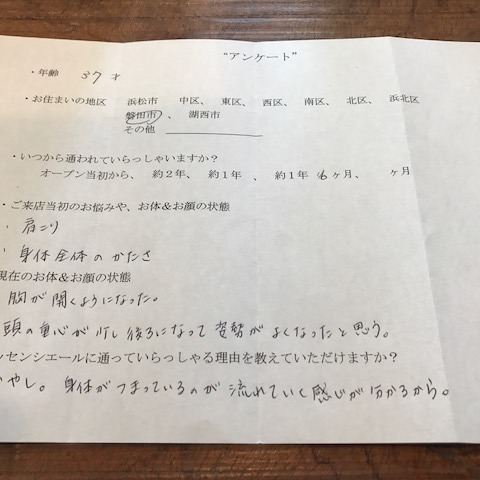 "アンケート"
・年齢 37才
・お住まいの地区 浜松市 中区、 東区、 西区、 南区、 北区、 浜北区
磐田市、 湖西市
その他
・いつから通われていらっしゃいますか?
オープン当初から、 約2年、 約1年 、 約1年 6ヶ月、 ヶ月
・ご来店当初のお悩みや、お体&お顔の状態
・肩こり
・身体全体のかたさ
現在のお体&お顔の状態
胸が開くようになった。
頭の重心が少し後ろになって姿勢がよくなったと思う。
ッセンシエールに通っていらっしゃる理由を教えていただけますか?
いやし。身体がつまっているのが流れていく感じが分かるから。